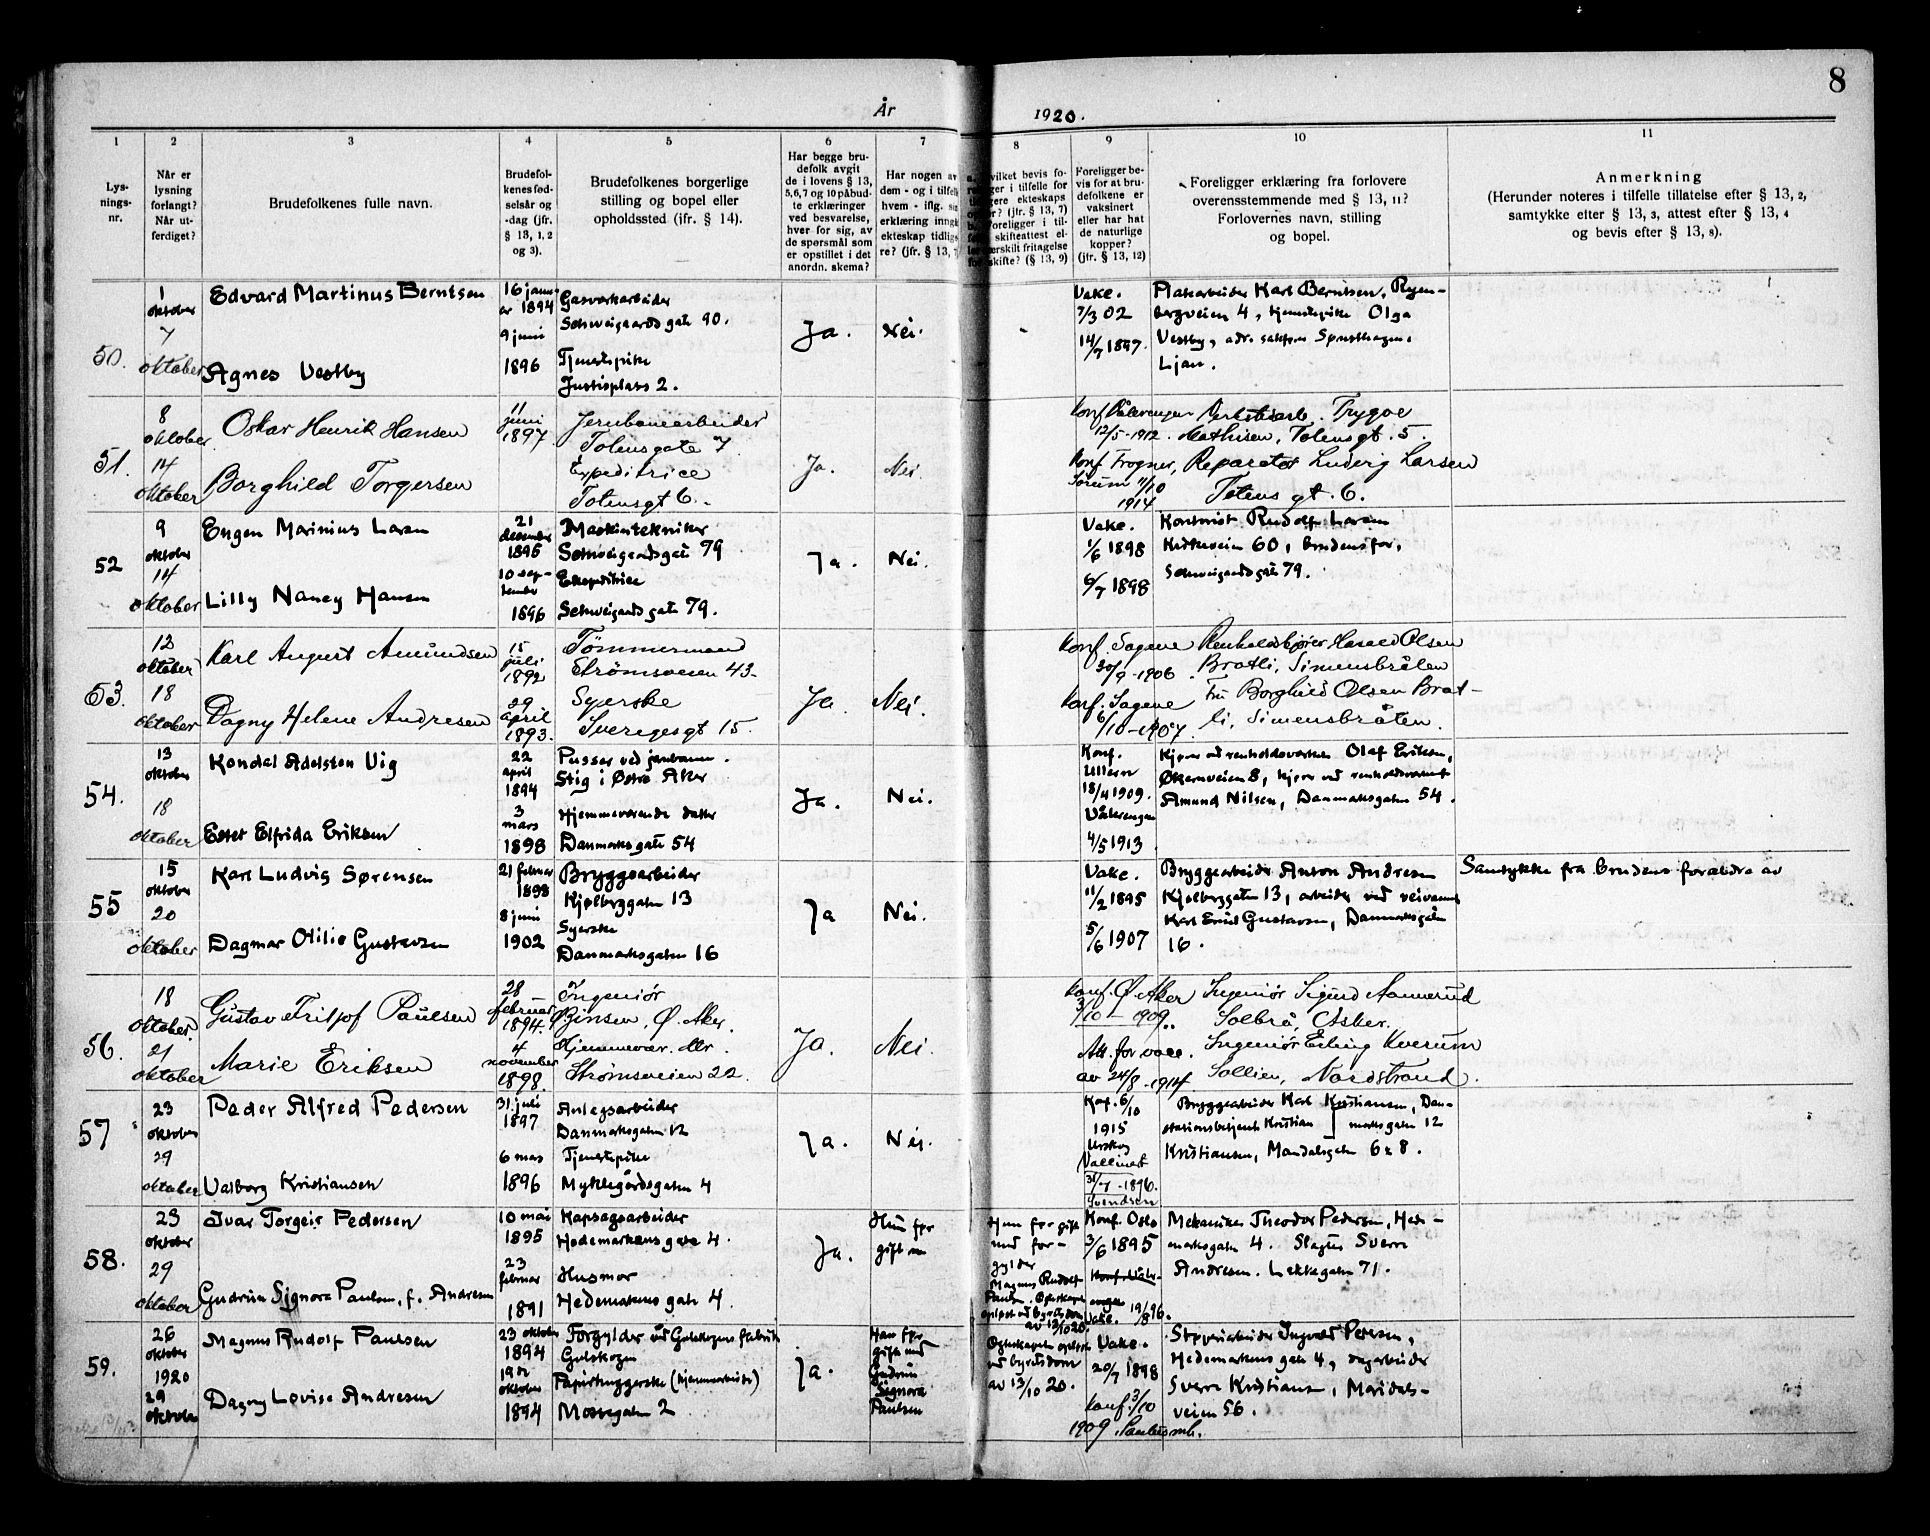 8
År 1920.
1 2 3 4 5 6 7 8 9 10 11
Lys-
nings-
nr.
Når er
lysning
forlangt?
Når ut-
ferdiget?
Brudefolkenes fulle navn.
Brudefol-
kenes fød-
selsår og
-dag (jfr.
§ 13, 1, 2
og 3).
Brudefolkenes borgerlige
stilling og bopel eller
opholdssted (ifr. § 14).
Har begge bru-
defolk avgit
de i lovens § 13,
5,6,7 og 10 påbud-
te erklæringer
ved besvarelse,
hver for sig, av
de spørsmål som
er opstillet i det
anordn. skema?
Har nogen av
dem - og i tilfelle
hvem - iflg.
erklæring inngå
ekteskap tidlige
re? (jfr. § 13, 7
vilket bevis fo-
ger i tilfelle for
gere ekteskaps
? (jfr. § 13, 7)
oreligger i til-
skifteattest el-
ærskilt fritagelse
skifte? (§ 13, 9)
Foreligger be-
vis for at bru-
defolkene er
vaksinert
eller har hat
de naturlige
kopper?
(jfr. § 13, 12)
Foreligger erklæring fra forlovere
overensstemmende med § 13, 11?
Forlovernes navn, stilling
og bopel.
Anmerkning
(Herunder noteres i tilfelle tillatelse efter § 13, 2,
samtykke efter § 13, 3, attest efter § 13, 4
og bevis efter § 13, 8).
50.
1
oktober
7
oktober
Edvard Martinus Berntsen
Agnes Vestby
16 janu-
ar 1894
9 juni
1896
Gasverkarbeider
Schweigaards gate 90.
Tjenestepike
Justisplass 2.
Ja.
Nei.
Vake.
7/3 02
14/7 1897.
Platearbeider Karl Berntsen, Ryen-
bergveien 4, tjenestepike Olga
Vestby, adr.
Ljan.
51.
8
oktober
14
oktober
Oskar Henrik Hansen
Borghild Torgersen
11
juni
1897
Jernbanearbeider
Totensgate 7
Expeditrice
Totensgt 6.
Ja.
Nei.
Konf Vålerengen
12/5-1912.
Konf Frogner,
Sørum 11/10
1914
Verkstedarb. Trygve
Mathisen, Totensgt. 5.
Reparatør Ludvig Larsen
Totens gt. 6.
52
9
oktober
14
oktober
Eugen Marinius Larsen
Lilly Nancy Hansen
21
desember
1895
10 sep-
tember
1896
Maskintekniker
Schweigaardsgate 79
Ekspeditrice
Schweigaards gate 79.
Ja.
Nei.
Vake.
1/6 1898
6/7 1898
Kontorist Rudolf Larsen
Kirkeveien 60, brudens for,
Schweigaardsgate 79.
53.
12
oktober
18
oktober
Karl August Amundsen
Dagny Helene Andresen
15
juli
1892
29
april
1893.
Tømmermand
Strømsveien 43.
Syerske
Sverigesgt 15.
Ja.
Nei.
Konf. Sagene
30/9-1906.
Konf. Sagene
6/10-1907
Renholdskjører Harald Olsen
Bratli, Simensbråten
Fru Borghild Olsen Brat-
li, Simensbråten.
54.
13
oktober
18
oktober
Kondal Adelsten Vig
Ester Elfrida Eriksen
22
april
1894
3
mars
1898
Pusser ved jernbanen.
Stig i Østre Aker
Hjemmeværende datter
Danmarks gate 54
Ja.
Nei.
Konf.
Ullern
18/4 1909.
Vålerengen
4/5 1913
Kjører ved renholdsverket Olaf Eriksen,
Økernveien 8, kjører ved renholdsverket
Amund Nilsen, Danmarksgaten 54.
55
15
oktober
20
oktober
Karl Ludvig Sørensen
Dagmar Otilie Gustavsen
21 februar
1893
8 juni
1902
Bryggearbeider
Kjølberggaten 13
Syerske
Danmarksgaten 16
Ja
Nei.
Vake.
11/2 1895
5/6 1907
Bryggearbeider Anton Andresen
Kjølberggaten 13, arbeider ved veivesenet
Karl Emil Gustavsen, Danmarksgaten
16.
Samtykke fra brudens forældre av
56.
18
oktober
21
oktober
Gustav Fritjof Paulsen
Marie Eriksen
28
februar
1894.
4
november
1898.
Ingeniør
Ø. Aker.
Hjemmevær. dtr.
Strømsveien 22.
Ja.
Nei.
Konf. Ø. Aker
3/10 - 1909.
Att. for vacc.
av 24/8-1914
Ingeniør Sigurd Aamerud
Solbrå, Asker.
Ingeniør Erling Kverum
Sollien, Nordstrand.
57
23
oktober
29
oktober
Peder Alfred Pedersen
Valborg Kristiansen
31 juli
1897
6 mars
1896
Anlegsarbeider
Danmarksgaten 12
Tjenestepike
Myklegårdsgaten 4
Ja.
Nei.
Konf. 6/10
1915
Urskog
Vallinat
31/7-1896.
Svendsen
Bryggearbeider Karl Kristiansen, Dan-
stationsbetjent Kristian marksgaten 12
Kristiansen, Mandalsgaten 6 & 8.
58.
23
oktober
29
oktober
Ivar Torgeir Pedersen
Gudrun Signora Paulsen, f. Andresen
10 mai
1895
23
februar
1891
Kapsagearbeider
Hedemarkens gate 4.
Husmor
Hedemarkens gate 4.
Ja.
Hun før
gift
Hun før gift
med for-
gylder
Magnus Rudolf
Paulsen. Ekteskapet
opløst ved byretsdom
av 13/10 20.
Konf. Oslo
3/6 1895
Vake. 19/8 96.
Mekaniker Theodor Pedersen, Hede-
marksgaten 4. Slagter Sverre
Andresen. Lakkegaten 71.
59.
26
oktober
1920
29
oktober
Magnus Rudolf Paulsen
Dagny Lovise Andresen
23 oktober
1894
oktober
1894
Forgylder ved Gulskogens fabrik
Gulskogen
Papirhyggerske (hjemmearbeide)
Mossegaten 2
Ja.
Han før
gift med
Gudrun
Signora
Paulsen
Ogteskapet opløst
ved byretsdom
av 13/10 20.
Vake.
20/7 1898
Konf. 3/10
1909 Paulus mk.
Støperiarbeider Ingvald Petersen,
Hedemarkens gate 4, dagarbeider
Sverre Kristiansen, Maridals-
veien 56.